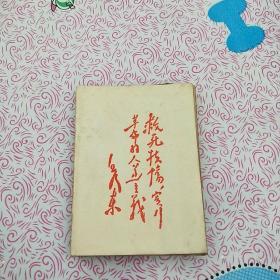 救死扶伤 实行
革命的人道主义
毛泽东